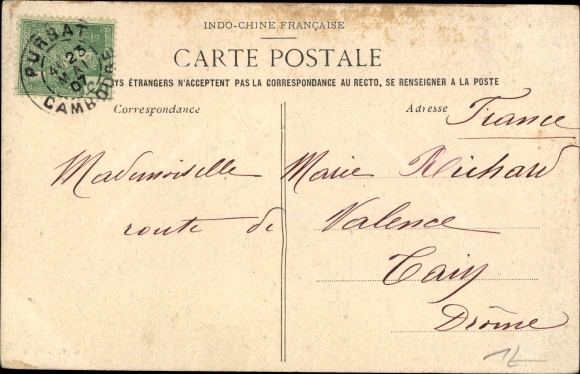 INDO-CHINE FRANÇAISE
CARTE POSTALE
YS ÉTRANGERS N'ACCEPTENT PAS LA CORRESPONDANCE AU RECTO, SE RENSEIGNER A LA POSTE
PURSAT
23
MAI
07
CAMBODGE
Correspondance
Adresse
France
Mademoiselle Marie Richard
route de Valence
Drôme